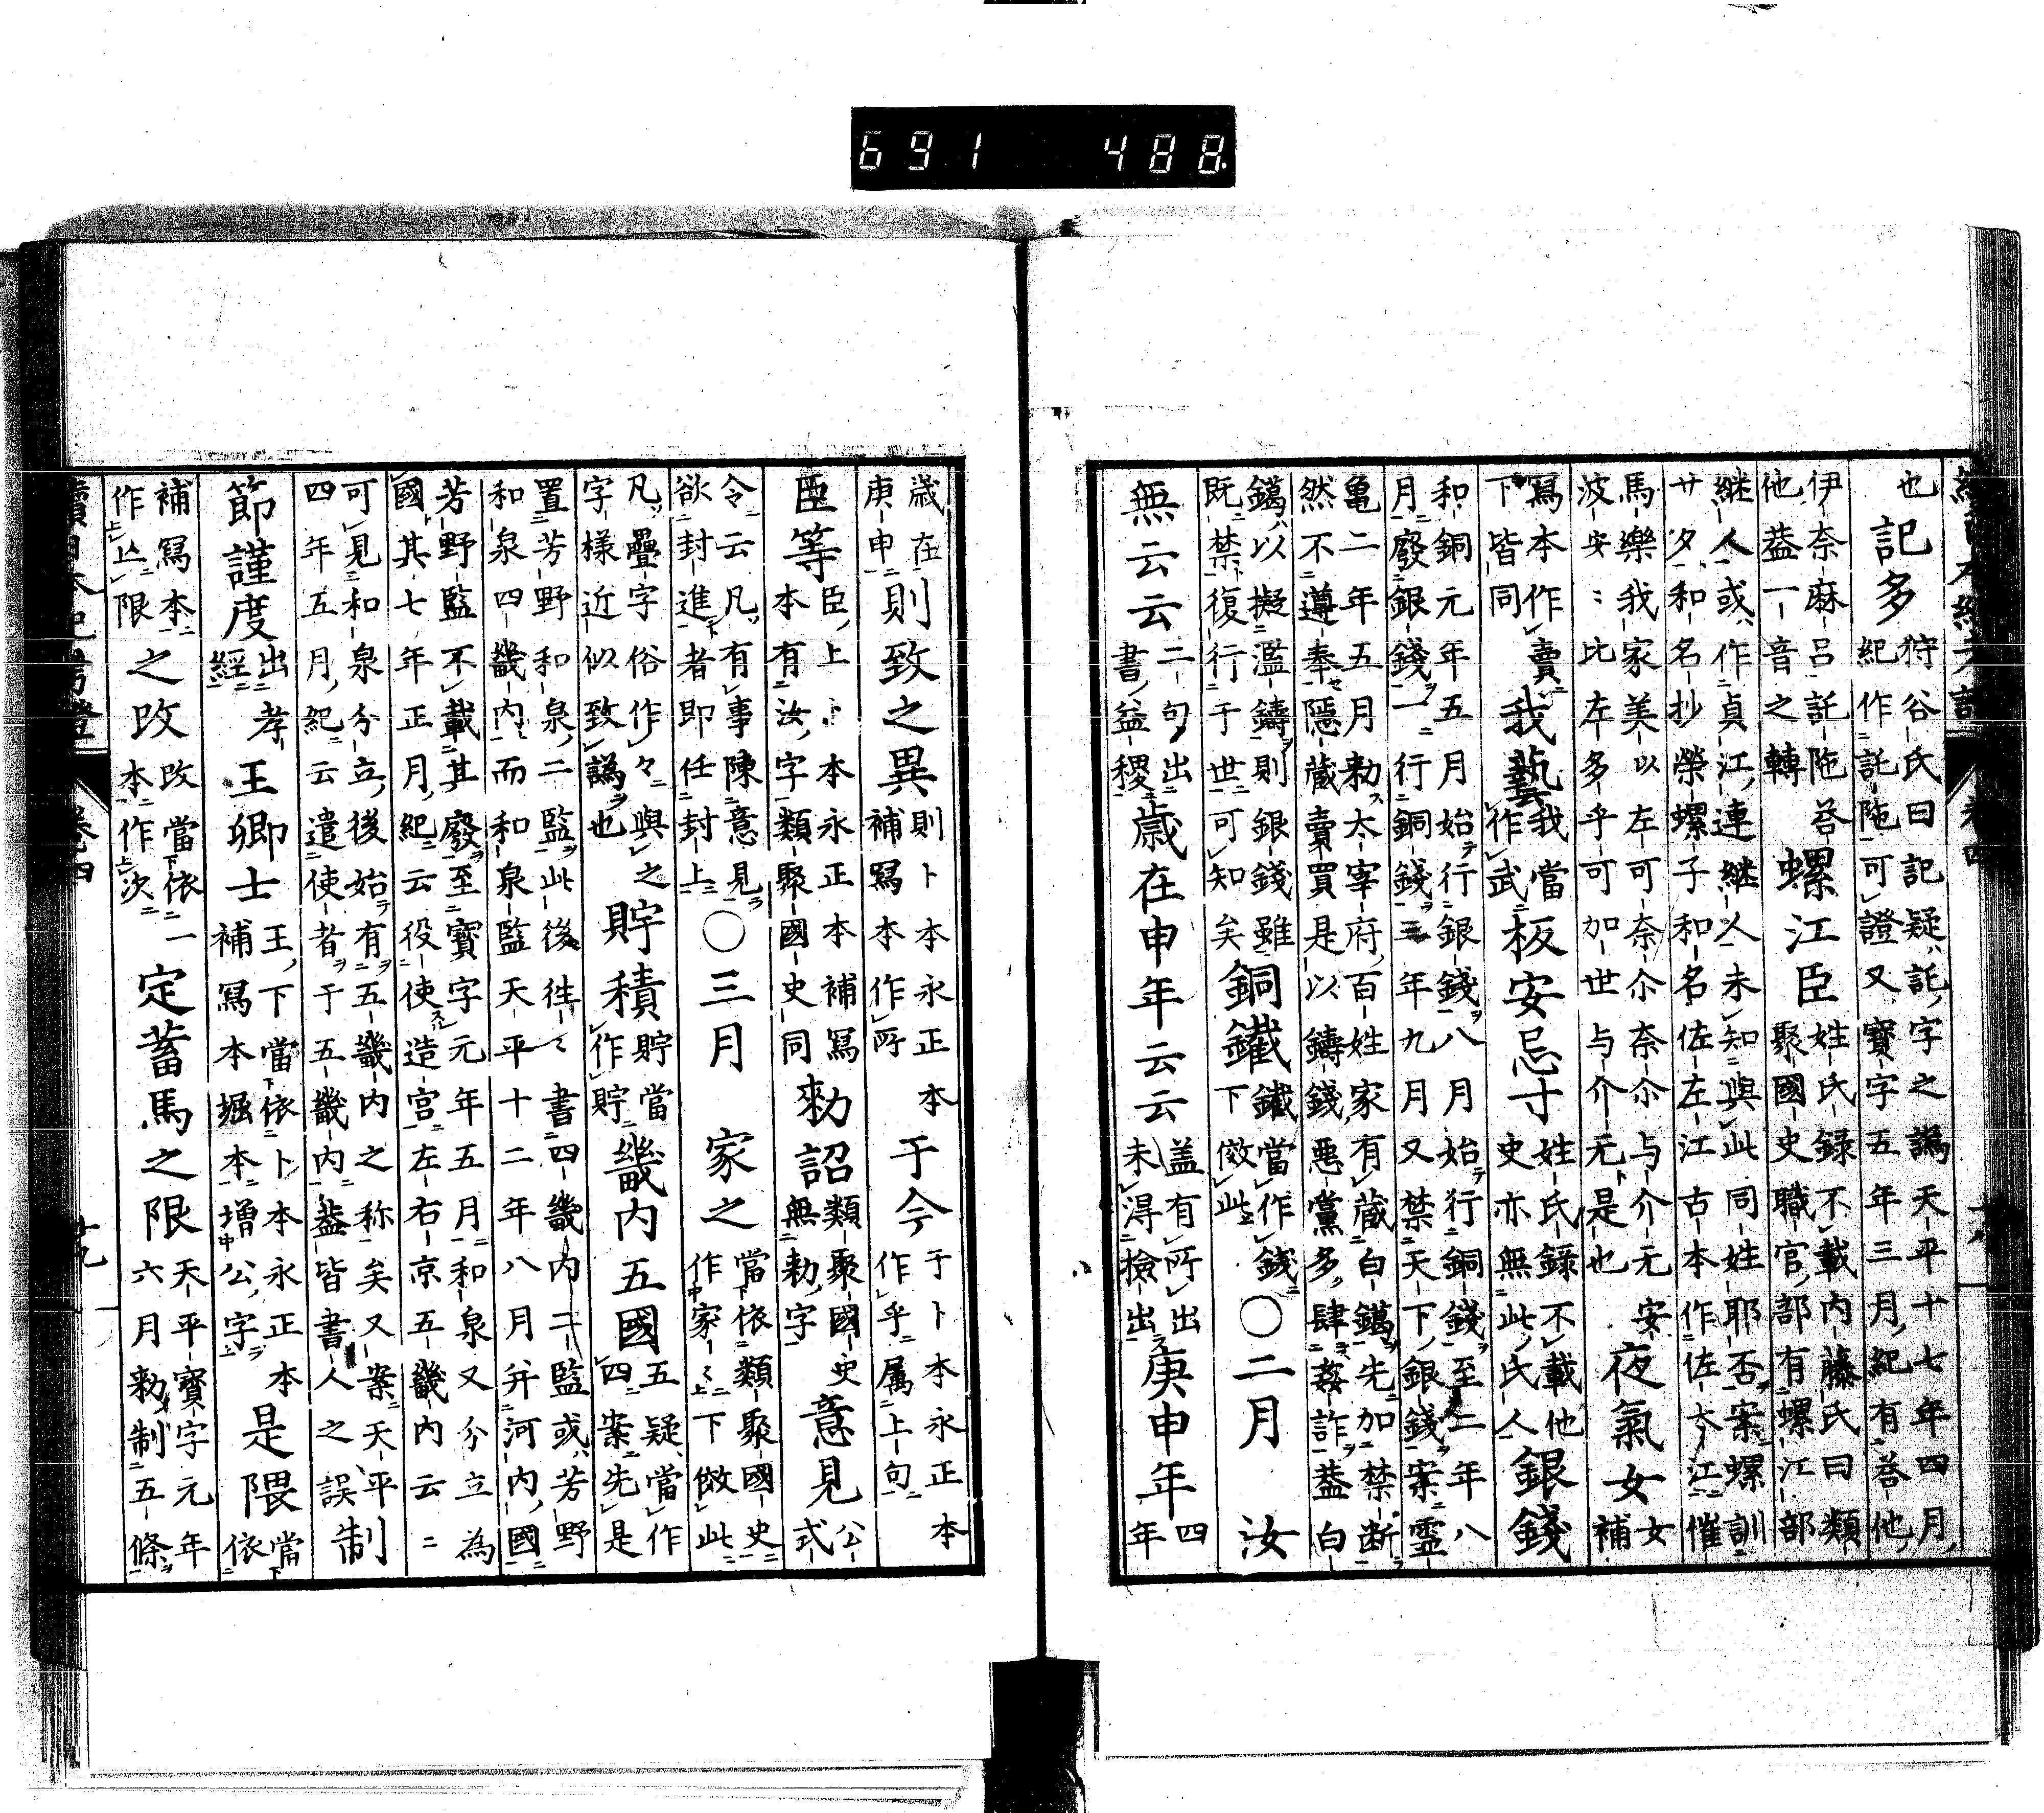 也
記多
狩谷氏曰記疑託字之譌天平十七年四月
紀作託陁可證又寳字五年三月紀有荅他
伊奈麻呂託陁荅
他葢一音之轉
螺江臣
姓氏録不載内藤氏曰類
聚國史職官部有螺江部
継人或作貞江連継人未知與此同姓耶否案螺訓
廿夕和名抄榮螺子和名佐左江古本作佐夳江催
馬樂我家美以左可奈尒奈尒与介无安
波安〻比左多乎可加世与介无是也
夜氣女
女
補
寫本作賣
下皆同
我藝
我當
作武
板安忌寸
姓氏録不載他
史亦無此氏人
銀錢
和銅元年五月始行銀錢八月始行銅錢至二年八
月廢銀錢一行銅錢三年九月又禁天下銀錢案霊
亀二年五月勑太宰府百姓家有蔵白鑞先加禁断
然不遵奉隠蔵賣買是以鑄錢悪黨多肆姦詐葢白
鑞以擬濫鑄則銀錢雖
既禁復行于世可知矣
銅鑯
鑯當作錢
下倣此
〇二月
汝
無云云
二句出
書益稷
歳在申年云云
盖有所出
未得撿出
庚申年
四
年
歳在
庚申
則致之異
則卜本永正本
補寫本本作所
于今
于卜本永正本
作乎属上句
臣等
臣上卜本永正本補寫
本有汝字類聚國史同
勑詔
類聚國史
無勑字
意見
公
式
令云凡有事陳意見
欲封進者即任封上
〇三月
家之
當依類聚國史
作家〻下倣此
凡疊字俗作々與之
字樣近似致譌也
貯積
貯當
作貯
畿内五國
五疑當作
四案先是
置芳野和泉二監此後徃〻書四畿内二監或芳野
和泉四畿内而和泉監天平十二年八月并河内國
芳野監不載其廢至寳字元年五月和泉又分立為
國其七年正月紀云役使造宮左右京五畿内云二
可見和泉分立後始有五畿内之称矣又案天平
四年五月紀云遣使者于五畿内葢皆書人之誤
制
節謹度
出孝
經
王卿士
王下當依卜本永正本
補寫本堀本本增公字
是隈
當
依
補寫本
作上限
之改
改當依一
本作次
定蓄馬之限
天平寳字元年
六月勑制五條
卷四
廿九
691 488